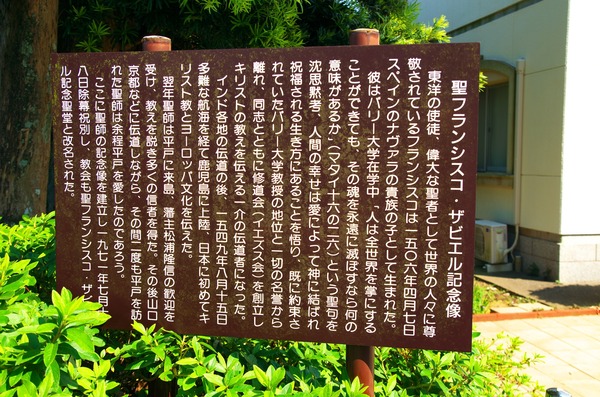 聖フランシスコ・ザビエル記念像
東洋の使徒、偉大な聖者として世界の人々に尊
敬されているフランシスコは一五〇六年四月七日
スペインのナヴァラの貴族の子として生まれた。
彼はパリー大学在学中、人は全世界を掌にする
ことができても、その魂を永遠に滅ぼすなら何の
意味があるか（マタイ十六の二六）という聖句を
沈思黙考、人間の幸せは愛によって神に結ばれ
祝福される生き方にあることを悟り、既に約束さ
れていたパリー大学教授の地位と一切の名誉から
離れ、同志とともに修道会（イエズス会）を創立し
キリストの教えを伝える一介の伝道者になった。
インド各地の伝道の後、一五四九年八月十五日
多難な航海を経て鹿児島に上陸、日本に初めてキ
リスト教とヨーロッパ文化を伝えた。
翌年聖師は平戸に来島 藩主松浦隆信の歓迎を
受け、教えを説き多くの信者を得た。その後山口
京都などに伝道しながら、その間二度も平戸を訪
れた聖師は余程平戸を愛したのであろう。
ここに聖師の記念像を建立し一九七一年七月十
八日除幕祝別し、教会も聖フランシスコ・ザビ
ル記念聖堂と改名された。